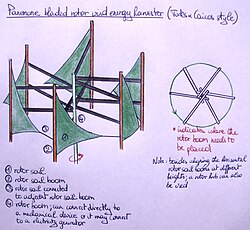 Panemone bladed rotor wind energy harvester (Turks & Caicos style)
① rotor sail
② rotor sail boom
③ rotor sail connected
to adjacent rotor sail boom
④ rotor boom; can connect directly to
a mechanical device or it may connect
to a electricity generator
• indicator where the
rotor boom needs to
be placed
Note: besides aligning the horizontal
rotor sail booms at different
heights; a rotor hub can also
be used